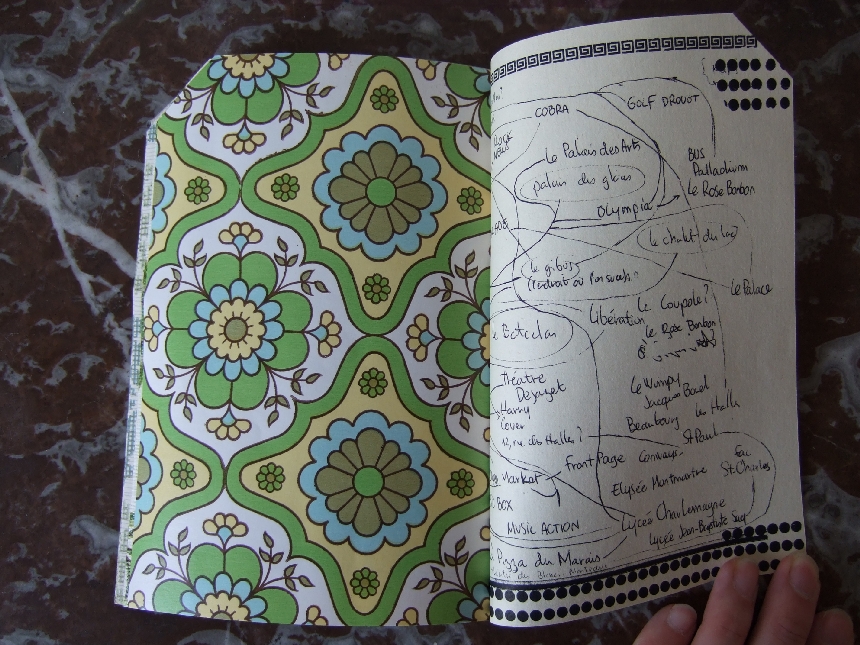 COBRA
GOLF DROUOT
Le Palais des Arts
palais des glaces
BUS
Palladium
Le Rose Bonbon
Olympia
le chalet du lac?
le gibus
(l'endroit où l'on
le Palace
La Coupole?
Libération
le Rose Bonbon
Bataclan
Théâtre
Dejazet
Harry
Cover
12, rue des Halles?
Le Wimpy
Jacques
Beaubourg
les Halles
St Paul
Front Page
Conways
Fac
St. Charles
Elysée Montmartre
Market
BOX
MUSIC ACTION
Lycée Charlemagne
Lycée Jean-Baptiste Say
Pizza du Marais